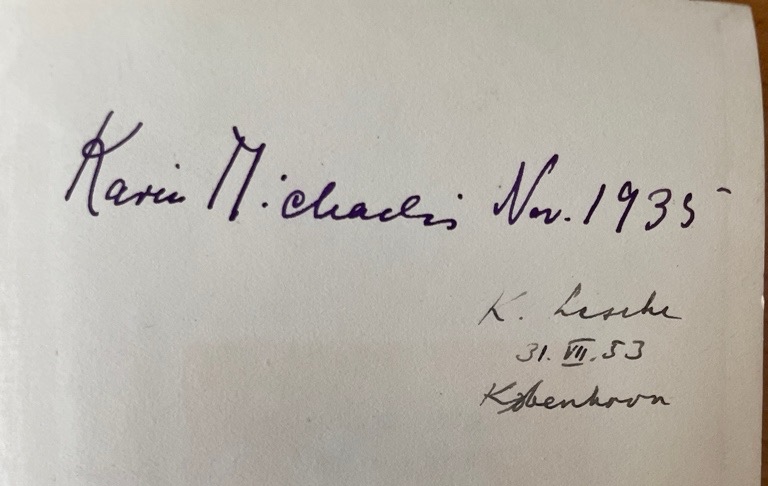 Karin Michaelis Nov. 1935
K. Lesche
31. VII. 53
København